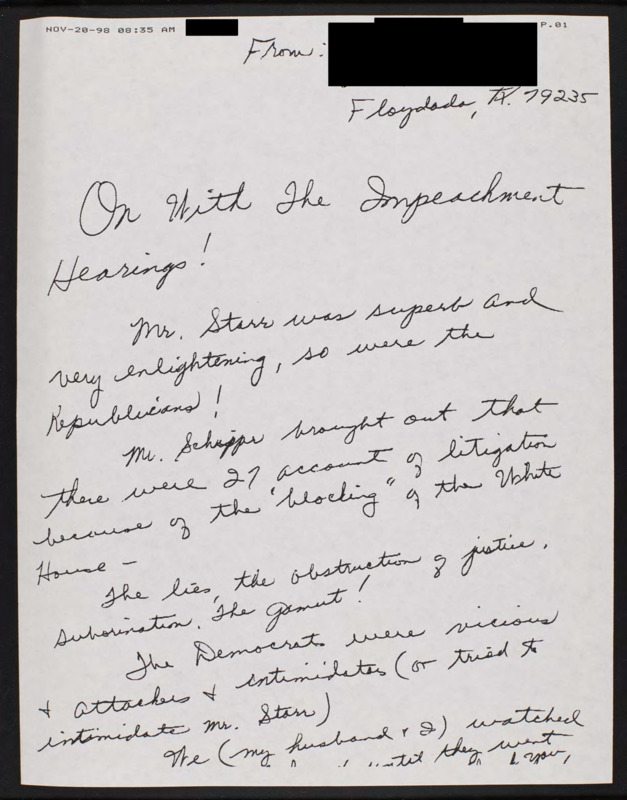 NOV-20-98 08:35 AM P.01
From:
Floydada, TX. 79235
On With The Impeachment
Hearings!
Mr. Starr was superb and
very enlightening, so were the
Republicans!
Mr. Schippe brought out that
there were 27 account of litigation
because of the "blocking" of the White
House –
The lies, the obstruction of justice.
Suborination. The gamut!
The Democrats were vicious
& attackers & intimidators (or tried to
intimidate Mr. Starr)
We (my husband & I) watched
until they went
you,